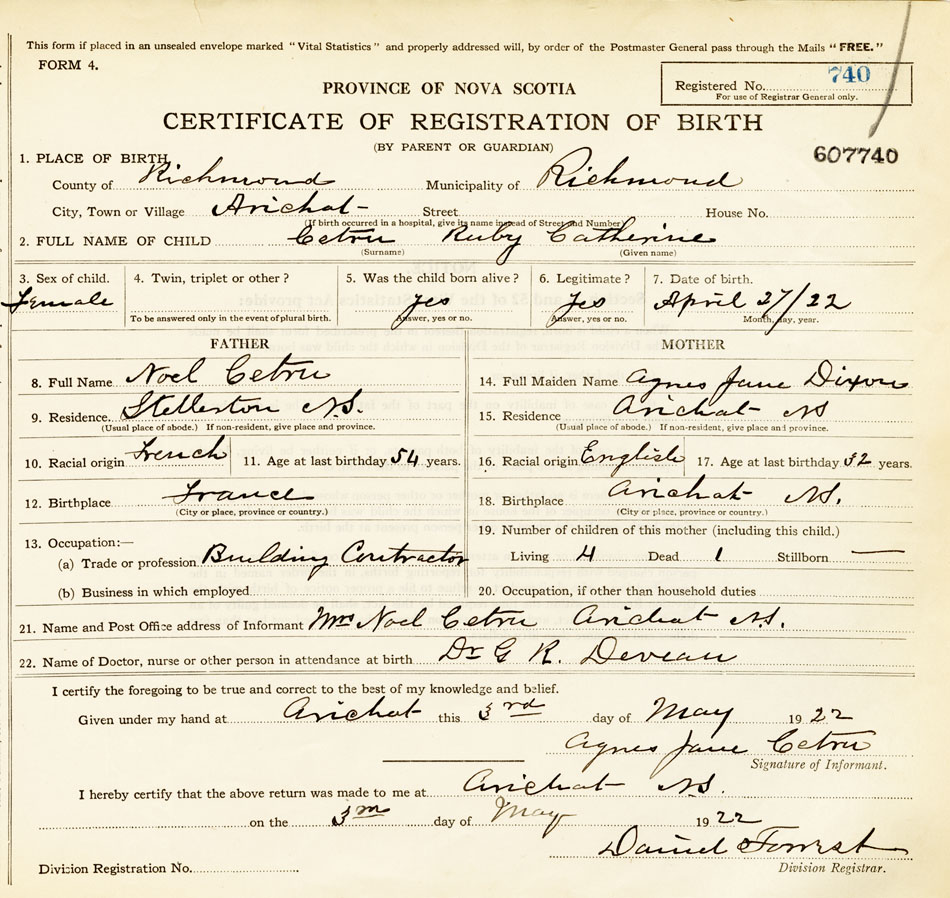 This form if placed in an unsealed envelope marked "Vital Statistics" and properly addressed will, by order of the Postmaster General pass through the Mails "FREE."
FORM 4.
Registered No. 740
For use of Registrar General only.
PROVINCE OF NOVA SCOTIA
CERTIFICATE OF REGISTRATION OF BIRTH
(BY PARENT OR GUARDIAN)
607740
1. PLACE OF BIRTH
County of Richmond Municipality of Richmond
City, Town or Village Arichat Street House No.
(If birth occurred in a hospital, give its name instead of Street and Number)
2. FULL NAME OF CHILD Cetru Ruby Catherine
(Surname) (Given name)
3. Sex of child. 4. Twin, triplet or other? 5. Was the child born alive? 6. Legitimate? 7. Date of birth.
Female yes Yes April 27/22
To be answered only in the event of plural birth. Answer, yes or no. Answer, yes or no. Month, day, year.
FATHER MOTHER
8. Full Name Noel Cetru 14. Full Maiden Name Agnes Jane Dixon
9. Residence. Stellerton N.S. 15. Residence Arichat NS
(Usual place of abode.) If non-resident, give place and province. (Usual place of abode.) If non-resident, give place and province.
10. Racial origin French 11. Age at last birthday 54 years. 16. Racial origin English 17. Age at last birthday 32 years.
12. Birthplace France 18. Birthplace Arichat N.S.
(City or place, province or country.) (City or place, province or country.)
13. Occupation:— 19. Number of children of this mother (including this child.)
(a) Trade or profession Building Contractor Living 4 Dead 1 Stillborn —
(b) Business in which employed 20. Occupation, if other than household duties
21. Name and Post Office address of Informant Mrs Noel Cetru Arichat N.S.
22. Name of Doctor, nurse or other person in attendance at birth Dr G R. Deveau
I certify the foregoing to be true and correct to the best of my knowledge and belief.
Given under my hand at Arichat this 3rd day of May 1922
Agnes Jane Cetru
Signature of Informant.
I hereby certify that the above return was made to me at Arichat NS.
on the day of May 1922
Daniel Forrest
Division Registration No. Division Registrar.